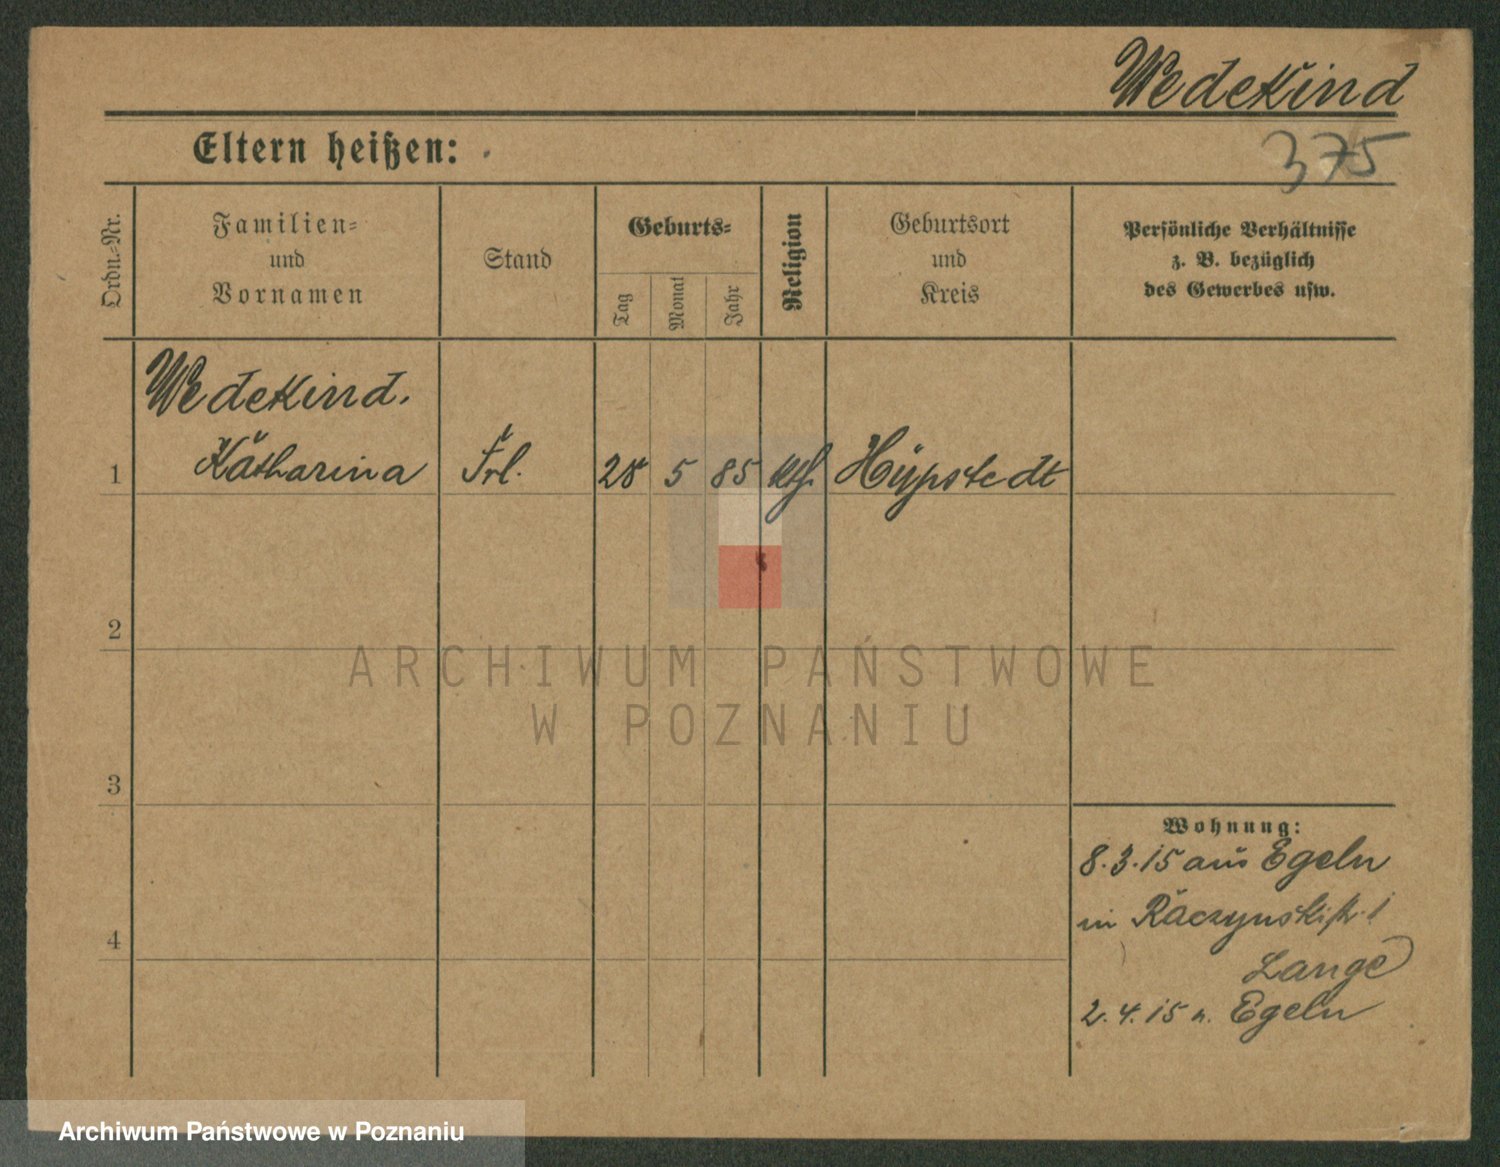 Wedekind
375
Eltern heißen:
Ordn.-Nr.
Familien-
und
Vornamen
Stand
Geburts-
Tag
Monat
Jahr
Religion
Geburtsort
und
Kreis
Persönliche Verhältnisse
z. B. bezüglich
des Gewerbes usw.
Wedekind.
1 Katharina Frl. 28 5 85 kth. Hüpstedt
2
3
4
Wohnung:
8.3.15 aus Egeln
in Raczynskistr. 1
Lange
2.4.15 n. Egeln
ARCHIWUM PAŃSTWOWE
W POZNANIU
Archiwum Państwowe w Poznaniu